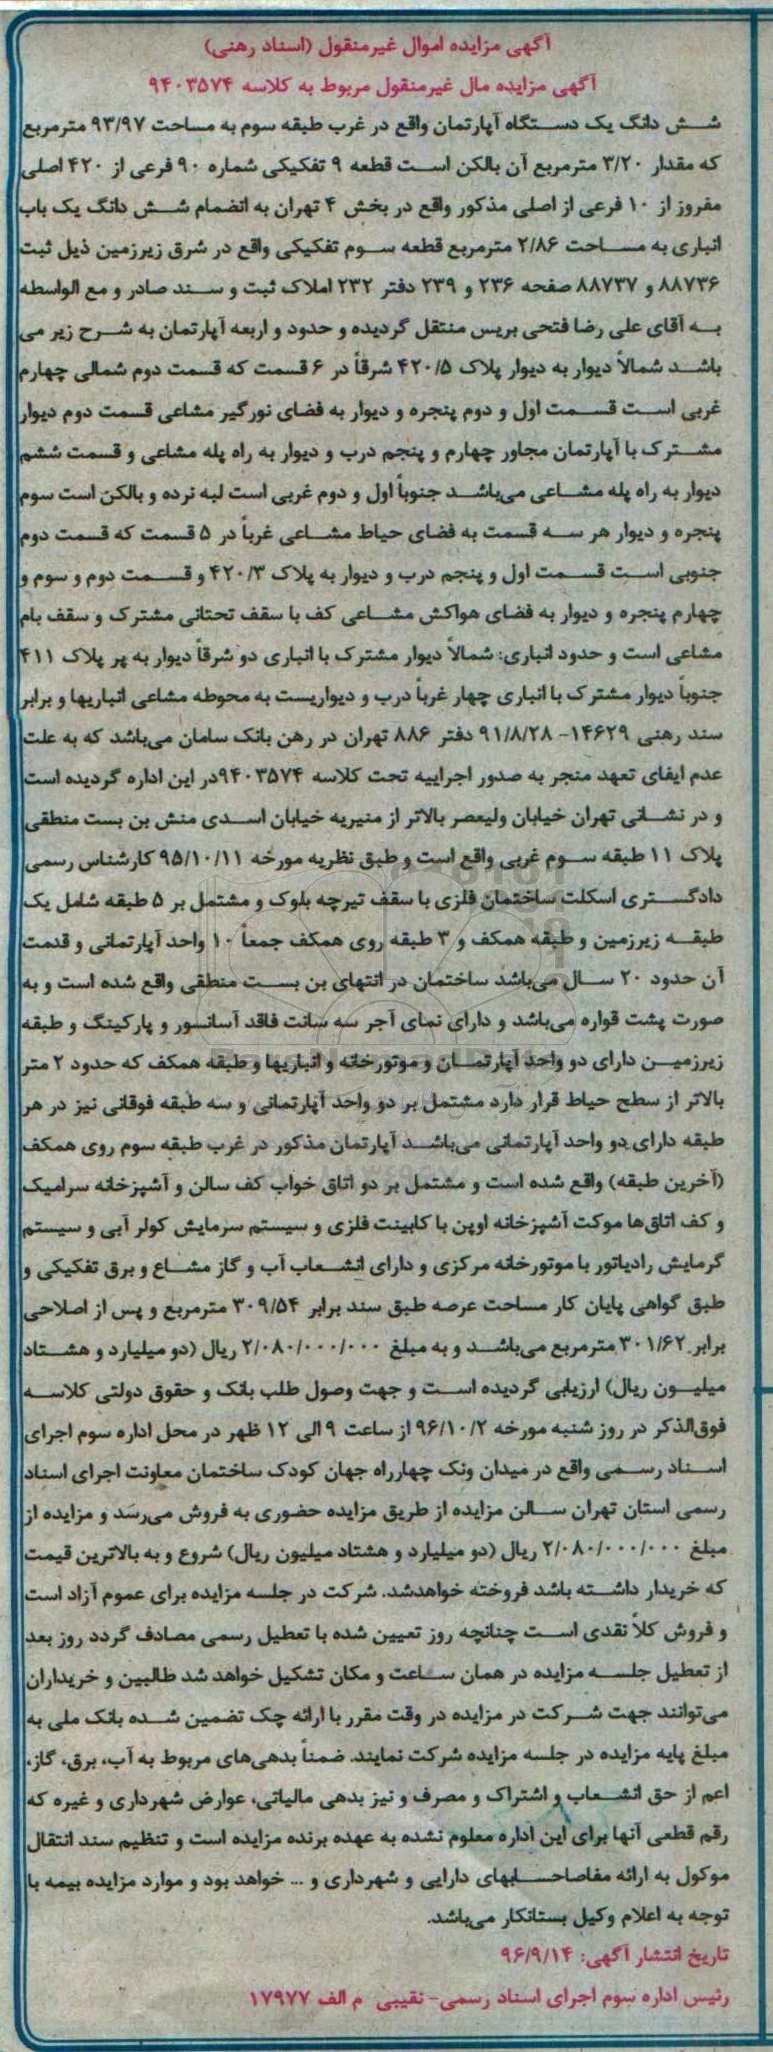 آگهی مزایده اموال غیرمنقول (اسناد رهنی)
آگهی مزایده مال غیرمنقول مربوط به کلاسه ۹۴۰۳۵۷۴
شش دانگ یک دستگاه آپارتمان واقع در غرب طبقه سوم به مساحت ۹۳/۹۷ مترمربع
که مقدار ۳/۲۰ مترمربع آن بالکن است قطعه ۹ تفکیکی شماره ۹۰ فرعی از ۴۲۰ اصلی
مفروز از ۱۰ فرعی از اصلی مذکور واقع در بخش ۴ تهران به انضمام شش دانگ یک باب
انباری به مساحت ۲/۸۶ مترمربع قطعه سوم تفکیکی واقع در شرق زیرزمین ذیل ثبت
۸۸۷۳۶ و ۸۸۷۳۷ صفحه ۲۳۶ و ۲۳۹ دفتر ۲۳۲ املاک ثبت و سند صادر و مع الواسطه
به آقای علی رضا فتحی بریس منتقل گردیده و حدود و اربعه آپارتمان به شرح زیر می
باشد شمالاً دیوار به دیوار پلاک ۴۲۰/۵ شرقاً در ۶ قسمت که قسمت دوم شمالی چهارم
غربی است قسمت اول و دوم پنجره و دیوار به فضای نورگیر مشاعی قسمت دوم دیوار
مشترک با آپارتمان مجاور چهارم و پنجم درب و دیوار به راه پله مشاعی و قسمت ششم
دیوار به راه پله مشاعی می‌باشد جنوباً اول و دوم غربی است لبه نرده و بالکن است سوم
پنجره و دیوار هر سه قسمت به فضای حیاط مشاعی غرباً در ۵ قسمت که قسمت دوم
جنوبی است قسمت اول و پنجم درب و دیوار به پلاک ۴۲۰/۳ و قسمت دوم و سوم و
چهارم پنجره و دیوار به فضای هواکش مشاعی کف با سقف تحتانی مشترک و سقف بام
مشاعی است و حدود انباری: شمالاً دیوار مشترک با انباری دو شرقاً دیوار به پر پلاک ۴۱۱
جنوباً دیوار مشترک با انباری چهار غرباً درب و دیواریست به محوطه مشاعی انباریها و برابر
سند رهنی ۱۴۶۲۹- ۹۱/۸/۲۸ دفتر ۸۸۶ تهران در رهن بانک سامان می‌باشد که به علت
عدم ایفای تعهد منجر به صدور اجراییه تحت کلاسه ۹۴۰۳۵۷۴در این اداره گردیده است
و در نشانی تهران خیابان ولیعصر بالاتر از منیریه خیابان اسدی منش بن بست منطقی
پلاک ۱۱ طبقه سوم غربی واقع است و طبق نظریه مورخه ۹۵/۱۰/۱۱ کارشناس رسمی
دادگستری اسکلت ساختمان فلزی با سقف تیرچه بلوک و مشتمل بر ۵ طبقه شامل یک
طبقه زیرزمین و طبقه همکف و ۳ طبقه روی همکف جمعاً ۱۰ واحد آپارتمانی و قدمت
آن حدود ۲۰ سال می‌باشد ساختمان در انتهای بن بست منطقی واقع شده است و به
صورت پشت قواره می‌باشد و دارای نمای آجر سه سانت فاقد آسانسور و پارکینگ و طبقه
زیرزمین دارای دو واحد آپارتمان و موتورخانه و انباریها و طبقه همکف که حدود ۲ متر
بالاتر از سطح حیاط قرار دارد مشتمل بر دو واحد آپارتمانی و سه طبقه فوقانی نیز در هر
طبقه دارای دو واحد آپارتمانی می‌باشد آپارتمان مذکور در غرب طبقه سوم روی همکف
(آخرین طبقه) واقع شده است و مشتمل بر دو اتاق خواب کف سالن و آشپزخانه سرامیک
و کف اتاق‌ها موکت آشپزخانه اوپن با کابینت فلزی و سیستم سرمایش کولر آبی و سیستم
گرمایش رادیاتور با موتورخانه مرکزی و دارای انشعاب آب و گاز مشاع و برق تفکیکی و
طبق گواهی پایان کار مساحت عرصه طبق سند برابر ۳۰۹/۵۴ مترمربع و پس از اصلاحی
برابر ۳۰۱/۶۲ مترمربع می‌باشد و به مبلغ ۲/۰۸۰/۰۰۰/۰۰۰ ریال (دو میلیارد و هشتاد
میلیون ریال) ارزیابی گردیده است و جهت وصول طلب بانک و حقوق دولتی کلاسه
فوق‌الذکر در روز شنبه مورخه ۹۶/۱۰/۲ از ساعت ۹ الی ۱۲ ظهر در محل اداره سوم اجرای
اسناد رسمی واقع در میدان ونک چهارراه جهان کودک ساختمان معاونت اجرای اسناد
رسمی استان تهران سالن مزایده از طریق مزایده حضوری به فروش می‌رسد و مزایده از
مبلغ ۲/۰۸۰/۰۰۰/۰۰۰ ریال (دو میلیارد و هشتاد میلیون ریال) شروع و به بالاترین قیمت
که خریدار داشته باشد فروخته خواهدشد. شرکت در جلسه مزایده برای عموم آزاد است
و فروش کلاً نقدی است چنانچه روز تعیین شده با تعطیل رسمی مصادف گردد روز بعد
از تعطیل جلسه مزایده در همان ساعت و مکان تشکیل خواهد شد طالبین و خریداران
می‌توانند جهت شرکت در مزایده در وقت مقرر با ارائه چک تضمین شده بانک ملی به
مبلغ پایه مزایده در جلسه مزایده شرکت نمایند. ضمناً بدهی‌های مربوط به آب، برق، گاز،
اعم از حق انشعاب و اشتراک و مصرف و نیز بدهی مالیاتی، عوارض شهرداری و غیره که
رقم قطعی آنها برای این اداره معلوم نشده به عهده برنده مزایده است و تنظیم سند انتقال
موکول به ارائه مفاصاحسابهای دارایی و شهرداری و ... خواهد بود و موارد مزایده بیمه با
توجه به اعلام وکیل بستانکار می‌باشد.
تاریخ انتشار آگهی: ۹۶/۹/۱۴
رئیس اداره سوم اجرای اسناد رسمی- نقیبی م الف ۱۷۹۷۷